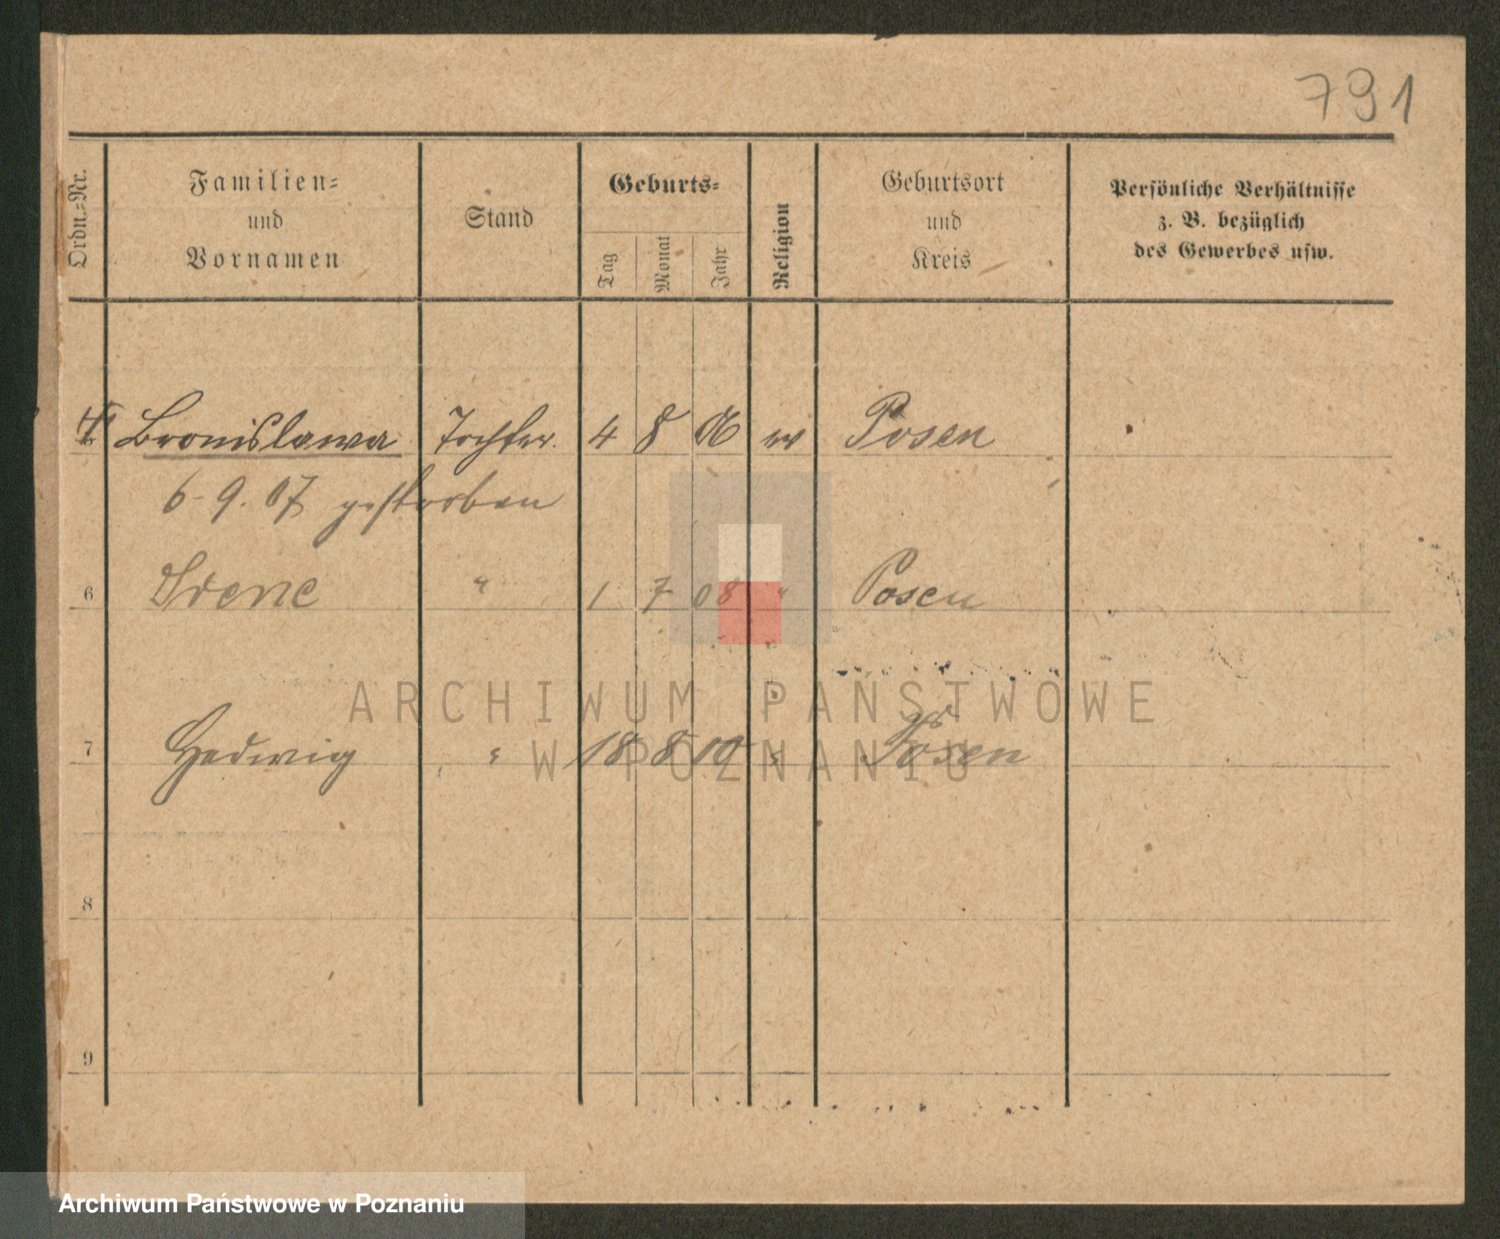 791
Ordn.-Nr.
Familien-
und
Vornamen
Stand
Geburts-
Tag
Monat
Jahr
Religion
Geburtsort
und
Kreis
Persönliche Verhältnisse
z. B. bezüglich
des Gewerbes usw.
Bronislawa Tochter 4 8 06 Posen
6-9.07 gestorben
6 Irene " 1 7 08 " Posen
7 Hedwig " 18 8 10 " Posen
8
9
ARCHIWUM PAŃSTWOWE
W POZNANIU
Archiwum Państwowe w Poznaniu